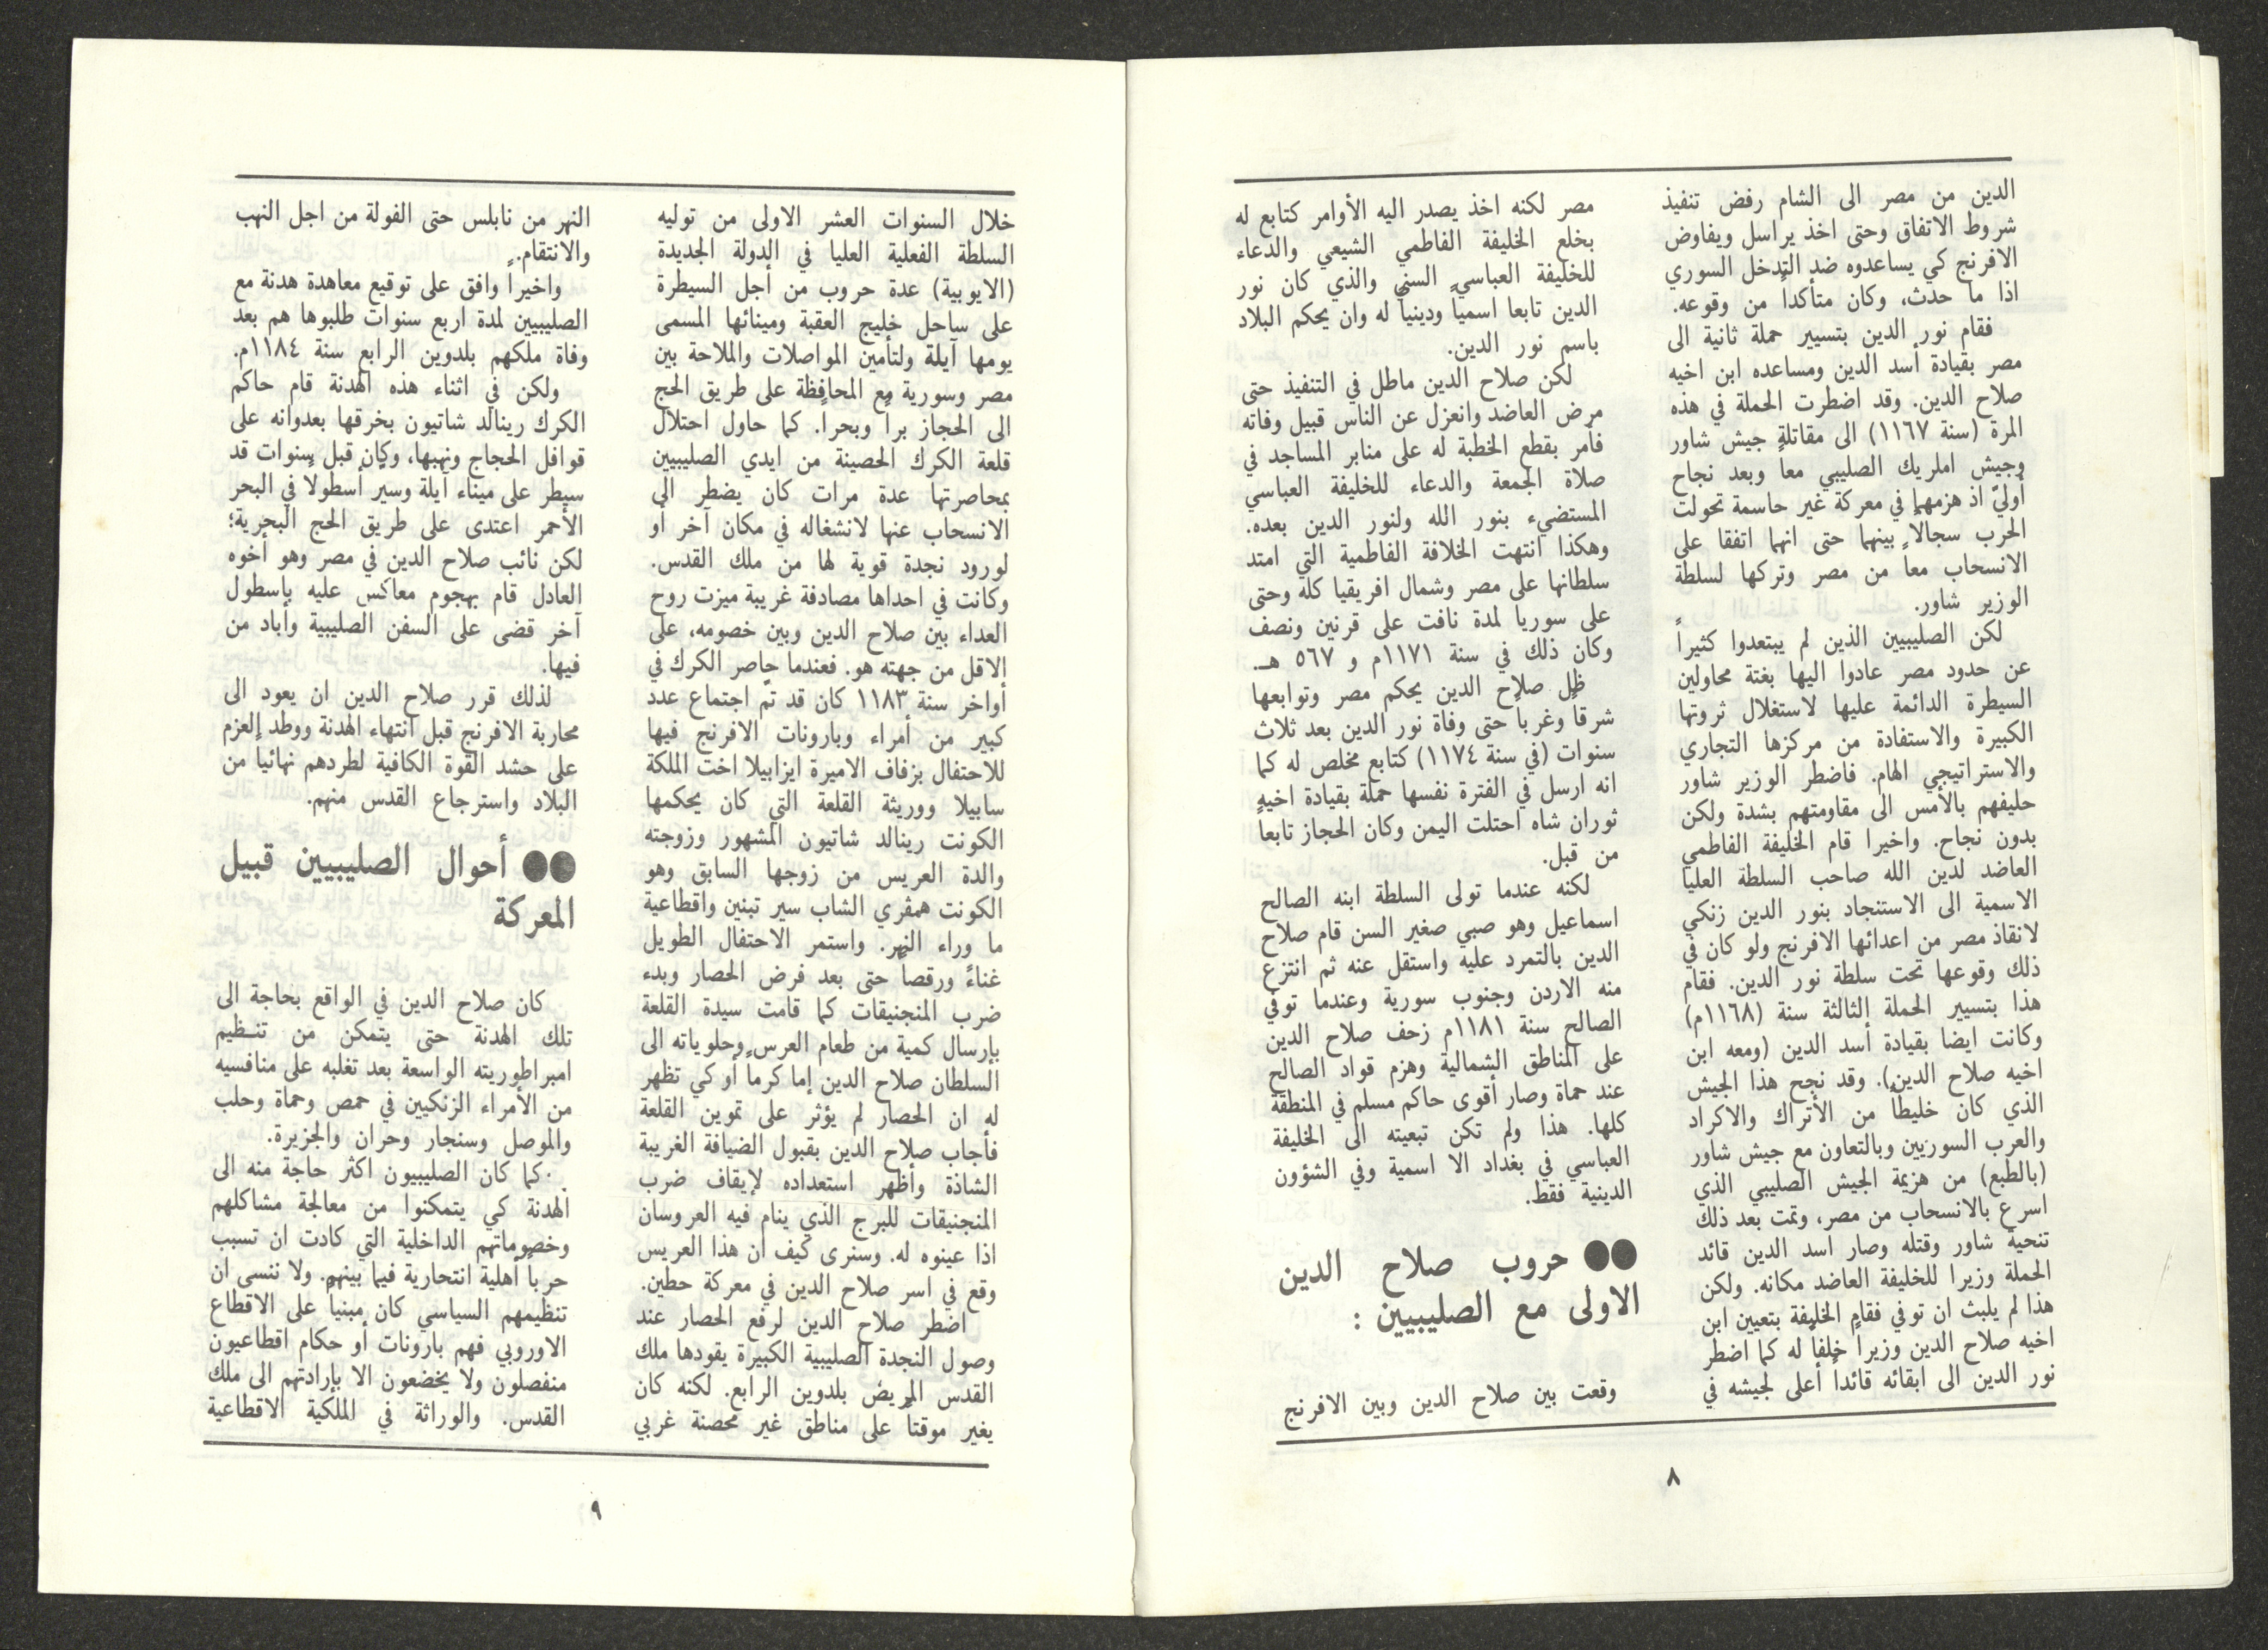 الدين من مصر الى الشام رفض تنفيذ
شروط الاتفاق وحتى اخذ يراسل ويفاوض
الافرنج كي يساعدوه ضد التدخل السوري
اذا ما حدث، وكان متأكداً من وقوعه.
فقام نور الدين بتسيير حملة ثانية الى
مصر بقيادة أسد الدين ومساعده ابن اخيه
صلاح الدين. وقد اضطرت الحملة في هذه
المرة (سنة ١١٦٧) الى مقاتلة جيش شاور
وجيش املريك الصليبي معاً وبعد نجاح
أوليّ اذ هزمهما في معركة غير حاسمة تحولت
الحرب سجالاً بينهما حتى انهما اتفقا على
الانسحاب معاً من مصر وتركها لسلطة
الوزير شاور.
لكن الصليبيين الذين لم يبتعدوا كثيراً
عن حدود مصر عادوا اليها بغتة محاولين
السيطرة الدائمة عليها لاستغلال ثروتها
الكبيرة والاستفادة من مركزها التجاري
والاستراتيجي الهام. فاضطر الوزير شاور
حليفهم بالأمس الى مقاومتهم بشدة ولكن
بدون نجاح. واخيرا قام الخليفة الفاطمي
العاضد لدين الله صاحب السلطة العليا
الاسمية الى الاستنجاد بنور الدين زنكي
لانقاذ مصر من اعدائها الافرنج ولو كان في
ذلك وقوعها تحت سلطة نور الدين. فقام
هذا بتسيير الحملة الثالثة سنة (١١٦٨م)
وكانت ايضا بقيادة أسد الدين (ومعه ابن
اخيه صلاح الدين). وقد نجح هذا الجيش
الذي كان خليطاً من الأتراك والاكراد
والعرب السوريين وبالتعاون مع جيش شاور
(بالطبع) من هزيمة الجيش الصليبي الذي
اسرع بالانسحاب من مصر، وتمت بعد ذلك
تنحية شاور وقتله وصار اسد الدين قائد
الحملة وزيرا للخليفة العاضد مكانه. ولكن
هذا لم يلبث ان توفي فقام الخليفة بتعيين ابن
اخيه صلاح الدين وزيراً خلفاً له كما اضطر
نور الدين الى ابقائه قائداً أعلى لجيشه في
مصر لكنه اخذ يصدر اليه الأوامر كتابع له
بخلع الخليفة الفاطمي الشيعي والدعاء
للخليفة العباسي السني والذي كان نور
الدين تابعا اسمياً ودينياً له وان يحكم البلاد
باسم نور الدين.
لكن صلاح الدين ماطل في التنفيذ حتى
مرض العاضد وانعزل عن الناس قبيل وفاته
فأمر بقطع الخطبة له على منابر المساجد في
صلاة الجمعة والدعاء للخليفة العباسي
المستضيء بنور الله ولنور الدين بعده.
وهكذا انتهت الخلافة الفاطمية التي امتد
سلطانها على مصر وشمال افريقيا كله وحتى
على سوريا لمدة نافت على قرنين ونصف
وكان ذلك في سنة ١١٧١م و ٥٦٧ هـ.
ظل صلاح الدين يحكم مصر وتوابعها
شرقاً وغرباً حتى وفاة نور الدين بعد ثلاث
سنوات (في سنة ١١٧٤) كتابع مخلص له كما
انه ارسل في الفترة نفسها حملة بقيادة اخيه
توران شاه احتلت اليمن وكان الحجاز تابعاً
من قبل.
لكنه عندما تولى السلطة ابنه الصالح
اسماعيل وهو صبي صغير السن قام صلاح
الدين بالتمرد عليه واستقل عنه ثم انتزع
منه الاردن وجنوب سورية وعندما توفي
الصالح سنة ١١٨١م زحف صلاح الدين
على المناطق الشمالية وهزم قواد الصالح
عند حماة وصار أقوى حاكم مسلم في المنطقة
كلها. هذا ولم تكن تبعيته الى الخليفة
العباسي في بغداد الا اسمية وفي الشؤون
الدينية فقط.
●● حروب صلاح الدين
الاولى مع الصليبيين :
وقعت بين صلاح الدين وبين الافرنج
٨
خلال السنوات العشر الاولى من توليه
السلطة الفعلية العليا في الدولة الجديدة
(الايوبية) عدة حروب من أجل السيطرة
على ساحل خليج العقبة ومينائها المسمى
يومها آيلة ولتأمين المواصلات والملاحة بين
مصر وسورية مع المحافظة على طريق الحج
الى الحجاز براً وبحراً. كما حاول احتلال
قلعة الكرك الحصينة من ايدي الصليبيين
بمحاصرتها عدة مرات كان يضطر الى
الانسحاب عنها لانشغاله في مكان آخر أو
لورود نجدة قوية لها من ملك القدس.
وكانت في احداها مصادفة غريبة ميزت روح
العداء بين صلاح الدين وبين خصومه، على
الاقل من جهته هو. فعندما حاصر الكرك في
أواخر سنة ١١٨٣ كان قد تمّ اجتماع عدد
كبير من أمراء وبارونات الافرنج فيها
للاحتفال بزفاف الاميرة ايزابيلا اخت الملكة
سابيلا ووريثة القلعة التي كان يحكمها
الكونت رينالد شاتيون المشهور وزوجته
والدة العريس من زوجها السابق وهو
الكونت همفري الشاب سير تبنين واقطاعية
ما وراء النهر. واستمر الاحتفال الطويل
غناءً ورقصاً حتى بعد فرض الحصار وبدء
ضرب المنجنيقات كما قامت سيدة القلعة
بإرسال كمية من طعام العرس وحلوياته الى
السلطان صلاح الدين إما كرماً أو كي تظهر
له ان الحصار لم يؤثر على تموين القلعة
فأجاب صلاح الدين بقبول الضيافة الغريبة
الشاذة وأظهر استعداده لإيقاف ضرب
المنجنيقات للبرج الذي ينام فيه العروسان
اذا عينوه له. وسنرى كيف ان هذا العريس
وقع في اسر صلاح الدين في معركة حطين.
اضطر صلاح الدين لرفع الحصار عند
وصول النجدة الصليبية الكبيرة يقودها ملك
القدس المريض بلدوين الرابع. لكنه كان
يغير موقتاً على مناطق غير محصنة غربي
النهر من نابلس حتى الفولة من اجل النهب
والانتقام.
واخيراً وافق على توقيع معاهدة هدنة مع
الصليبيين لمدة اربع سنوات طلبوها هم بعد
وفاة ملكهم بلدوين الرابع سنة ١١٨٤م.
ولكن في اثناء هذه الهدنة قام حاكم
الكرك رينالد شاتيون بخرقها بعدوانه على
قوافل الحجاج ونهبها، وكان قبل سنوات قد
سيطر على ميناء آيلة وسيّر أسطولاً في البحر
الأحمر اعتدى على طريق الحج البحرية؛
لكن نائب صلاح الدين في مصر وهو أخوه
العادل قام بهجوم معاكس عليه بإسطول
آخر قضى على السفن الصليبية وأباد من
فيها.
لذلك قرر صلاح الدين ان يعود الى
محاربة الافرنج قبل انتهاء الهدنة ووطد العزم
على حشد القوة الكافية لطردهم نهائيا من
البلاد واسترجاع القدس منهم.
●● أحوال الصليبيين قبيل
المعركة
كان صلاح الدين في الواقع بحاجة الى
تلك الهدنة حتى يتمكن من تنظيم
امبراطوريته الواسعة بعد تغلبه على منافسيه
من الأمراء الزنكيين في حمص وحماة وحلب
والموصل وسنجار وحران والجزيرة.
كما كان الصليبيون اكثر حاجة منه الى
الهدنة كي يتمكنوا من معالجة مشاكلهم
وخصوماتهم الداخلية التي كادت ان تسبب
حرباً أهلية انتحارية فيما بينهم. ولا ننسى ان
تنظيمهم السياسي كان مبنياً على الاقطاع
الاوروبي فهم بارونات أو حكام اقطاعيون
منفصلون ولا يخضعون الا بإرادتهم الى ملك
القدس. والوراثة في الملكية الاقطاعية
٩